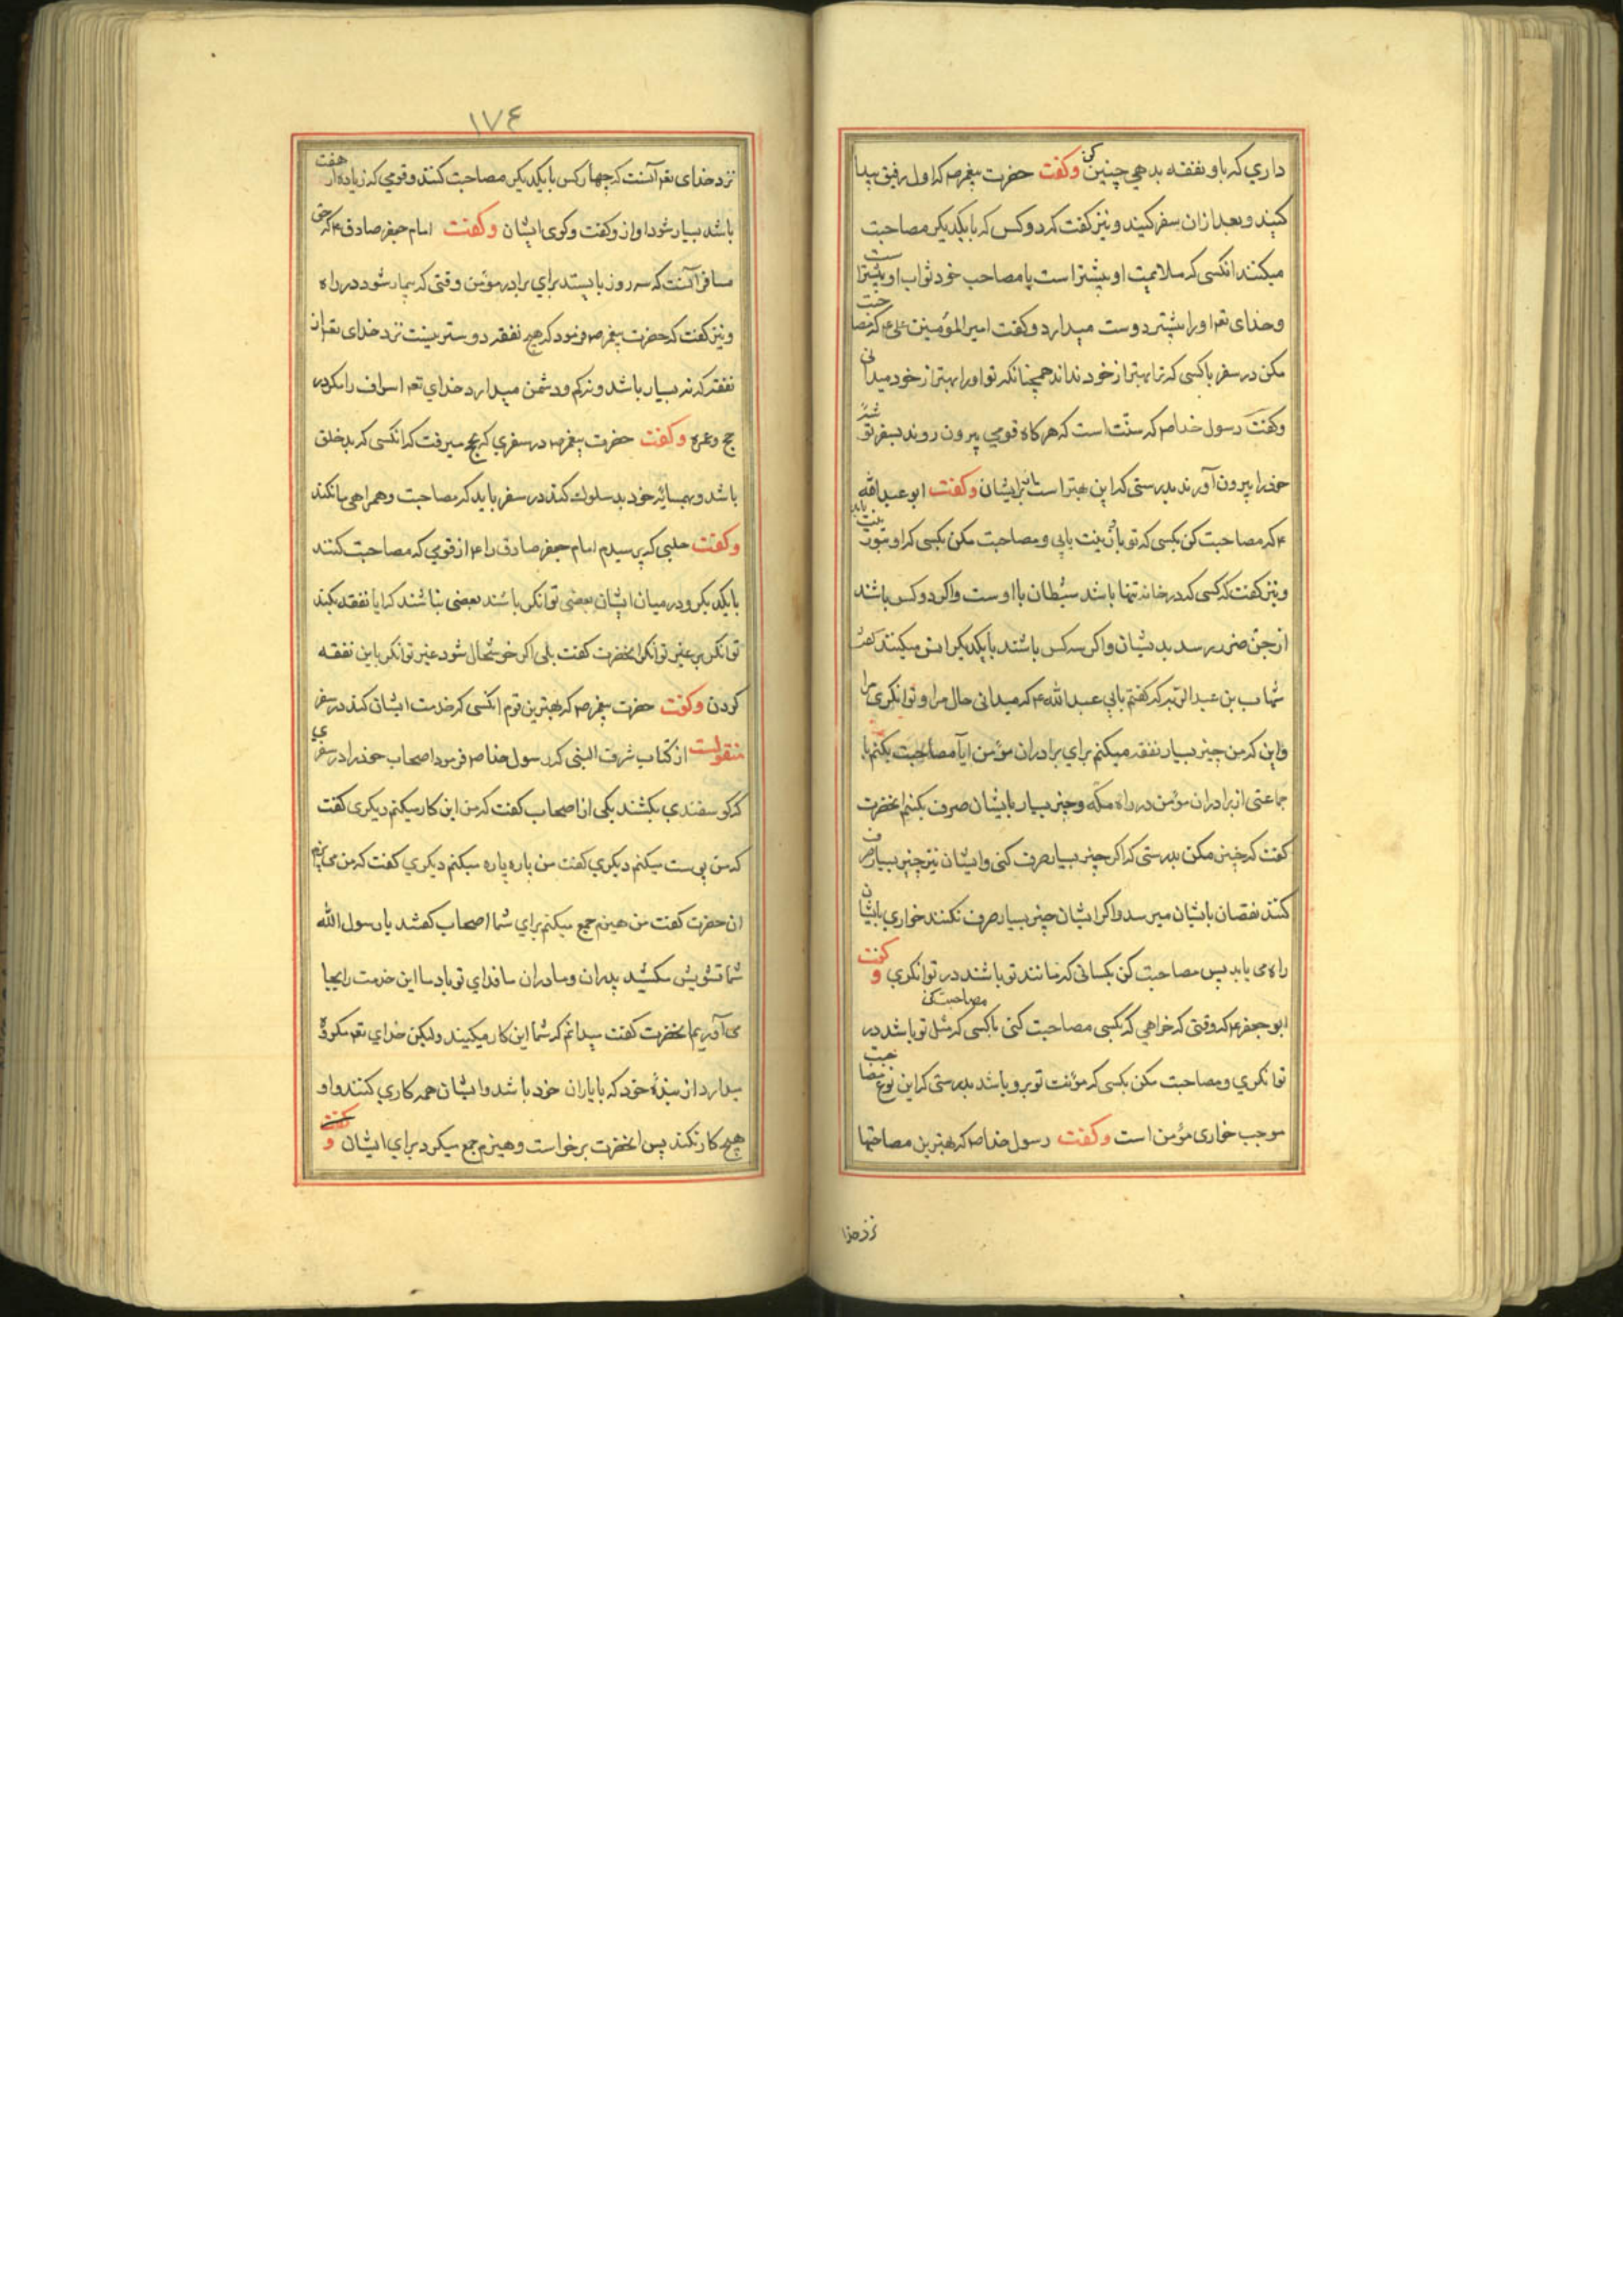 داري که باو نفقه بدهي چنين کن وکفت حضرت پيغمبر ص که اول رفيق پيدا
کنيد و بعد ازان سفر کنيد و نيز کفت که دو کس که با يکديکر مصاحبت
ميکنند انکسي که ملايمت او بيشتر است با مصاحب خود ثواب او بيشتر است
وخداى تعه اورا بيشتر دوست ميدارد وکفت امير المؤمنين على ع که مصاحبت
مکن در سفر با کسى که ترا بهتر از خود نداند همچنانکه تو اورا بهتر از خود ميدانى
وکفت رسول خدا ص که سنّت است که هرکاه قومي بيرون روند بسفر توشهٔ
خودرا بيرون آورند بدرستى که اين بهتر است برايشان وکفت ابو عبد الله
ع که مصاحبت کن بکسى که تو باو زينت يابي و مصاحبت مکن بکسى که او بتو زينت يابد
ونيز کفت که کسى که در خانه تنها باشد شيطان با اوست واکر دو کس باشند
از جن ضرر رسد بديشان واکر سه کس باشند با يکديکر انس ميکيند کفت
شهاب بن عبد الربه که کفتم بابي عبد الله ع که ميدانى حال مرا و توانکرى مرا
واين که من چيز بسيار نفقه ميکنم براي برادران مؤمن ايا مصاحبت بکنم با
جماعتى از برادران مؤمن در راه مکّه وچيز بسيار بايشان صرف بکنم انحضرت
کفت که چنين مکن بدرستى که اکر چيز بسيار صرف کنى وايشان نيز چيز بسيار صرف
کنند نقصان بايشان ميرسد واکر ايشان چيز بسيار صرف نکنند خواري بايشان
راه مى يابد پس مصاحبت کن بکسانى که مانند تو باشند در توانکري وکفت
ابو جعفر ع که وقتى که خواهي که بکسى مصاحبت کنى باکسى که مثل تو باشد در مصاحبت کن
توانکري و مصاحبت مکن بکسى که مؤنت تو برو باشد بدرستى که اين نوع مصاحبت
موجب خارى مؤمن است وکفت رسول خدا ص که بهترين مصاحبتها
نزد خدا
١٧٤
نزد خداى تعه آنست که چهار کس با يکديکر مصاحبت کنند وقومي که زياده از هفت
باشد بسيار شود اواز وکفت وکوى ايشان وکفت امام جعفر صادق ع که حق
مسافر آنست که سه روز بايستد براي برادر مؤمن وقتى که بيمار شود در راه
ونيز کفت که حضرت پيغمبر ص فرمود که هيچ نفقه دوستر نيست نزد خداى تعه از
نفقه که نه بسيار باشد و نه کم ودشمن ميدارد خداي تعه اسراف را مکر در
حج وعمره وکفت حضرت پيغمبر ص در سفري که بحج ميرفت که انکسى که بدخلق
باشد وبهمسايهٔ خود بد سلوک کند در سفر بايد که مصاحبت وهمراهى ما نکند
وکفت حلبي که پرسيدم امام جعفر صادق را ع از قومي که مصاحبت کنند
با يکديکر ودر ميان ايشان بعضى توانکر باشند بعضى نباشند که ايا نفقه بکند
توانکر بر غير توانکر انحضرت کفت بلى اکر خوشحال شود غير توانکر باين نفقه
کردن وکفت حضرت پيغمبر ص که بهترين قوم انکسى که خدمت ايشان کند در سفر
منقولست از کتاب شرف النبى که رسول خدا ص فرمود اصحاب خودرا در سفري
که کوسفندي بکشند يکى از اصحاب کفت که من اين کار ميکنم ديکرى کفت
که من پوست ميکنم ديکري کفت من پاره پاره ميکنم ديکري کفت که من مى پزم
ان حضرت کفت من هيزم جمع ميکنم براي شما اصحاب کفتند يا رسول الله
شما تشويش مکشيد پدران ومادران ما فداي تو باد ما اين خدمت را بجا
مى آوريم انحضرت کفت ميدانم که شما اين کار ميکنيد وليکن خداي تعه مکروه
ميدارد از بندهٔ خود که با ياران خود باشد وايشان همه کاري کنند واو
هيچ کار نکند پس انحضرت برخواست وهيزم جمع ميکرد براي ايشان وکفت